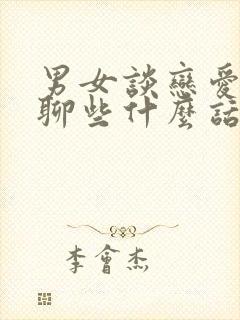 男女談戀愛
聊些什麼話
李會杰